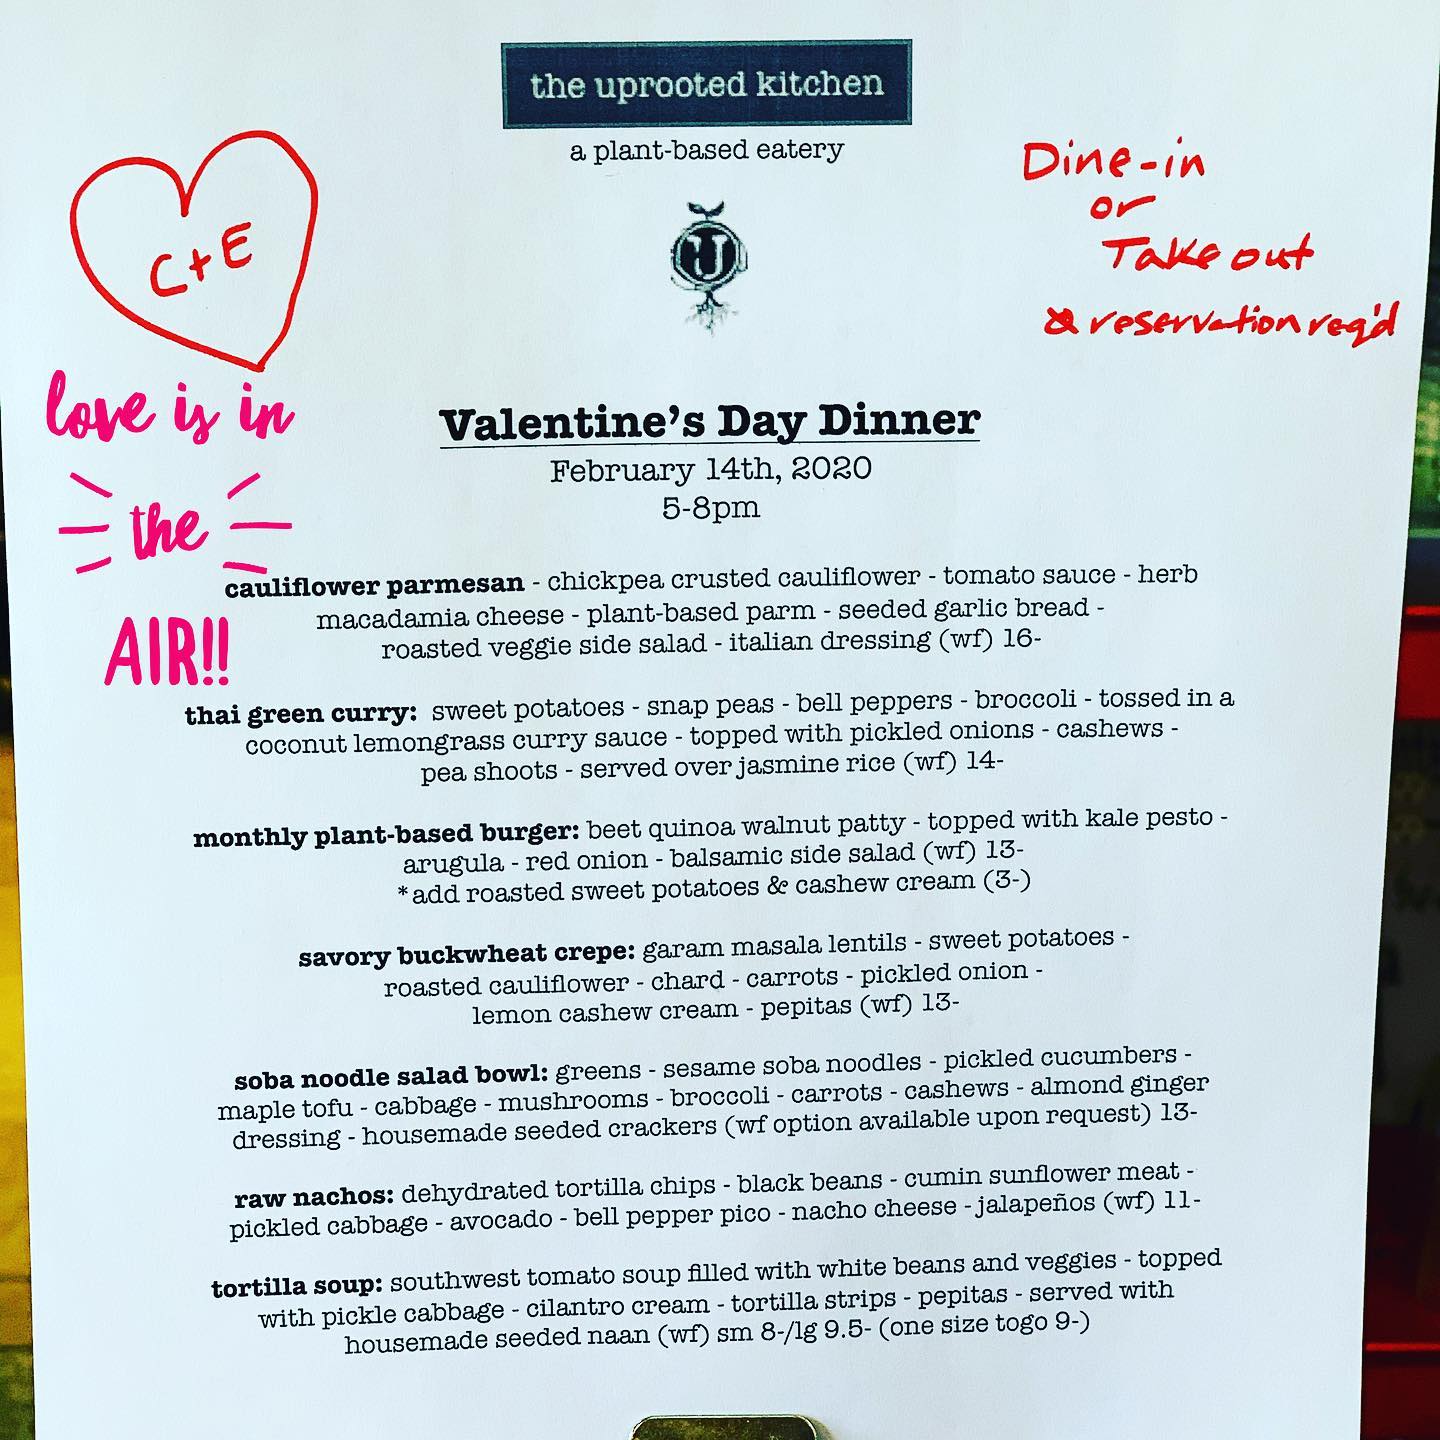 the uprooted kitchen
a plant-based eatery
U
C+E
Dine-in
or
Take out
* reservation req'd
love is in
the
AIR!!
Valentine's Day Dinner
February 14th, 2020
5-8pm
cauliflower parmesan - chickpea crusted cauliflower - tomato sauce - herb
macadamia cheese - plant-based parm - seeded garlic bread -
roasted veggie side salad - italian dressing (wf) 16-
thai green curry: sweet potatoes - snap peas - bell peppers - broccoli - tossed in a
coconut lemongrass curry sauce - topped with pickled onions - cashews -
pea shoots - served over jasmine rice (wf) 14-
monthly plant-based burger: beet quinoa walnut patty - topped with kale pesto -
arugula - red onion - balsamic side salad (wf) 13-
*add roasted sweet potatoes & cashew cream (3-)
savory buckwheat crepe: garam masala lentils - sweet potatoes -
roasted cauliflower - chard - carrots - pickled onion -
lemon cashew cream - pepitas (wf) 13-
soba noodle salad bowl: greens - sesame soba noodles - pickled cucumbers -
maple tofu - cabbage - mushrooms - broccoli - carrots - cashews - almond ginger
dressing - housemade seeded crackers (wf option available upon request) 13-
raw nachos: dehydrated tortilla chips - black beans - cumin sunflower meat -
pickled cabbage - avocado - bell pepper pico - nacho cheese - jalapeños (wf) 11-
tortilla soup: southwest tomato soup filled with white beans and veggies - topped
with pickle cabbage - cilantro cream - tortilla strips - pepitas - served with
housemade seeded naan (wf) sm 8-/lg 9.5- (one size togo 9-)